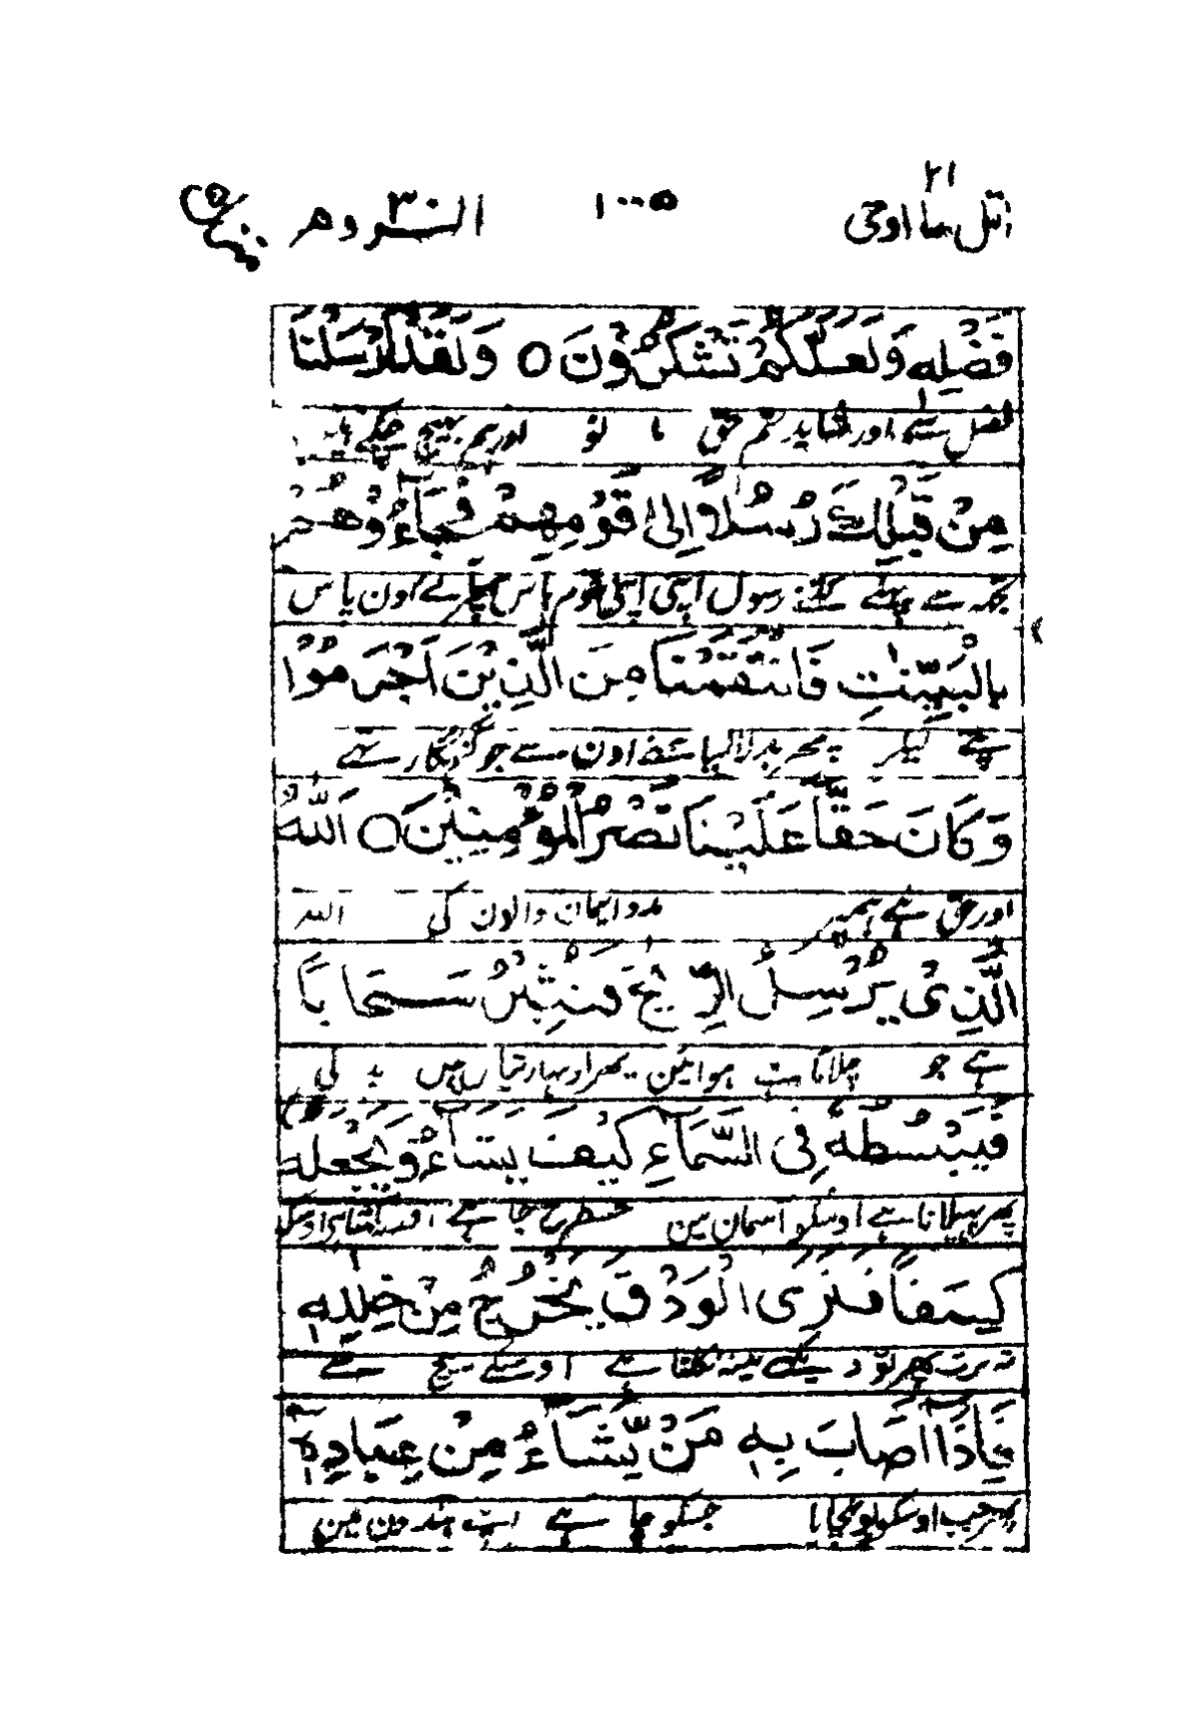 اتل ما اوحی ٢١
١٠٠٥
الروم ٣٠
فَضْلِهٖ وَلَعَلَّكُمْ تَشْكُرُوْنَ ○ وَلَقَدْ اَرْسَلْنَا
فضل سے اور شاید تم حق ما نو اور ہم بھیج چکے ہیں
مِنْ قَبْلِكَ رُسُلًا اِلٰى قَوْمِهِمْ فَجَآءُوْهُمْ
تجہ سے پہلے کتنے رسول اپنی اپنی قوم پاس پھر آئے اون پاس
بِالْبَيِّنٰتِ فَانْتَقَمْنَا مِنَ الَّذِيْنَ اَجْرَمُوْا
پتے لیکر پھر بدلا لیا ہمنے اون سے جو گنہگار تھے
وَكَانَ حَقًّا عَلَيْنَا نَصْرُ الْمُؤْمِنِيْنَ ○ اَللّٰهُ
اور حق ہے ہمپر مدد ایمان والون کی اللہ
الَّذِىْ يُرْسِلُ الرِّيٰحَ فَتُثِيْرُ سَحَابًا
ہے جو چلاتا ہے ہوائین پھر اوبھارتیاں ہیں بدلی
فَيَبْسُطُهٗ فِى السَّمَآءِ كَيْفَ يَشَآءُ وَيَجْعَلُهٗ
پھر پھیلاتا ہے اوسکو آسمان مین جسطرح چاہے
كِسَفًا فَتَرَى الْوَدْقَ يَخْرُجُ مِنْ خِلٰلِهٖ
تہ برتہ پھر تو دیکھے مینہ نکلتا ہے اوسکے بیچ سے
فَاِذَآ اَصَابَ بِهٖ مَنْ يَّشَآءُ مِنْ عِبَادِهٖٓ
پھر جب اوسکو پہنچایا جسکو چاہے اپنے بندون مین